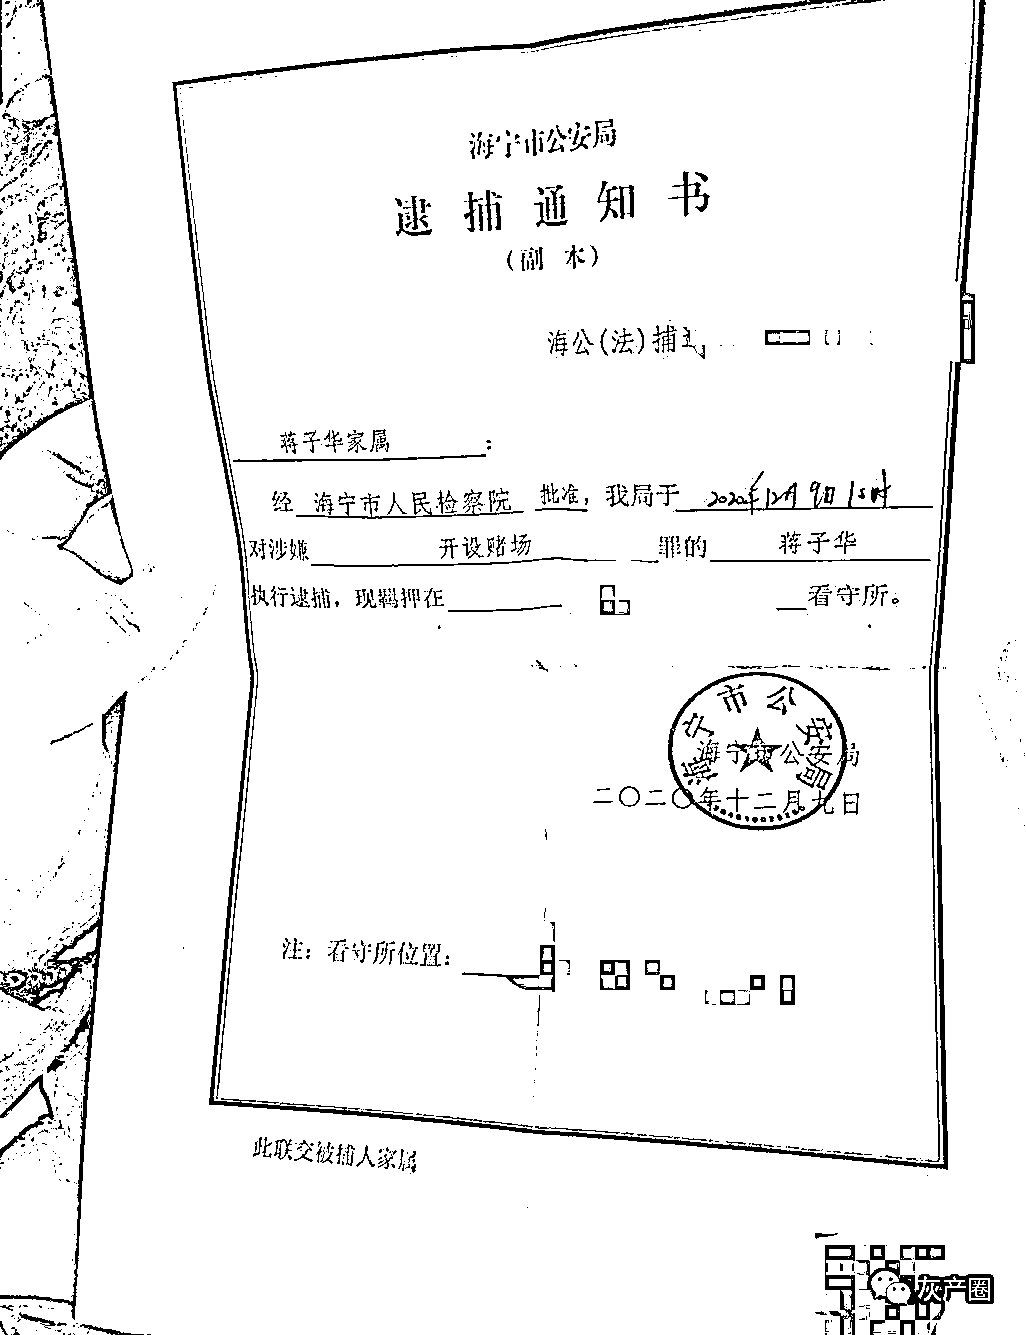 海宁市公安局
逮捕通知书
（副本）
海公(法)捕
蒋子华家属：
经 海宁市人民检察院 批准，我局于 2020年12月9日15时
对涉嫌 开设赌场 罪的 蒋子华
执行逮捕，现羁押在 看守所。
海宁市公安局
海宁市公安局
二〇二〇年十二月九日
注：看守所位置：
此联交被捕人家属
灰产圈